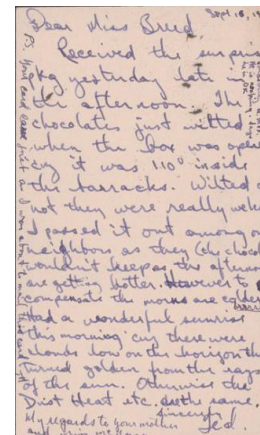 Sept 18, 19
Dear Miss Breed,
Received the surprise
pkg yesterday late in
the afternoon. The
chocolates just wilted
when the box was open
cuz it was 110° inside
the barracks. Wilted or
not they were really welc
I passed it out among our
neighbors as they (the chocol
wouldn't keep as the afternoo
are getting hotter. However to
compensate the morns are colder
Had a wonderful sunrise
this morning cuz there were
clouds low on the horizon tha
turned golden from the rays
of the sun. Otherwise the
Dust Heat etc. are the same.
Sincerely
My regards to your mother Ted.
and
PS. Your card came just as I was about to mail this card